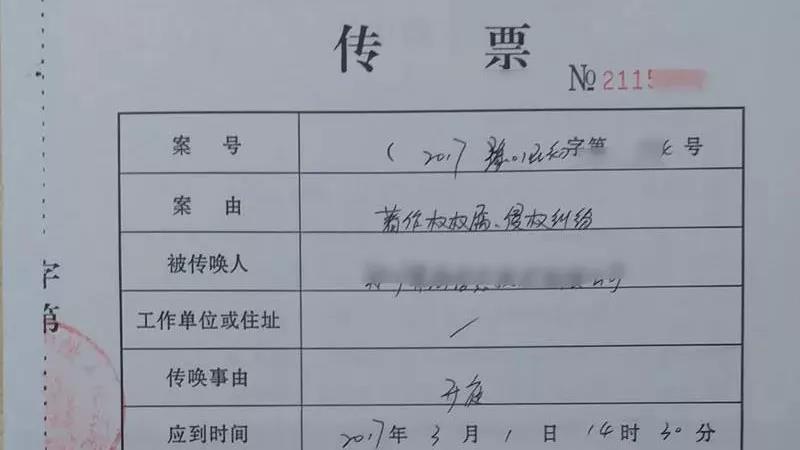 传 票
№ 2115
案 号
( 2017 豫01民初字第 号
案 由
著作权权属、侵权纠纷
被传唤人
工作单位或住址
/
传唤事由
开庭
应到时间
2017年 3 月 1 日 14时 30分
字第